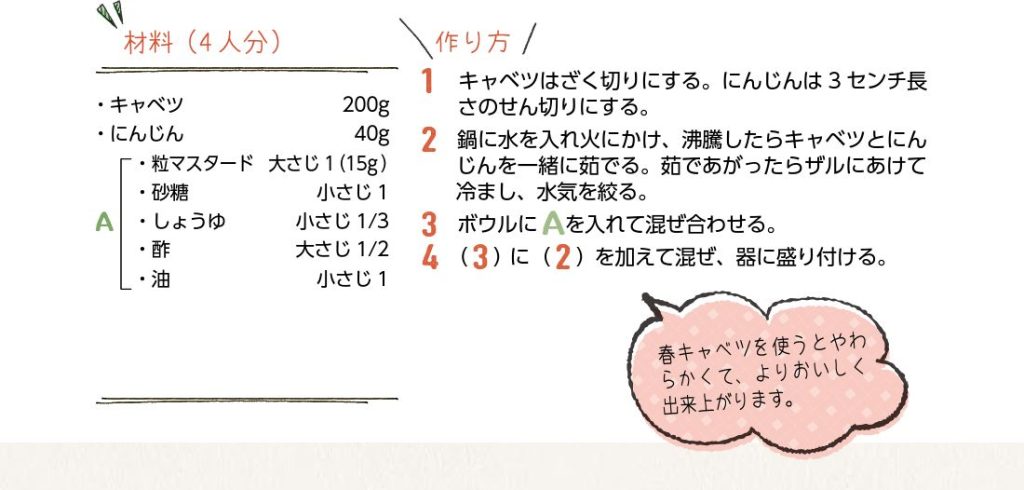 材料（4人分）
・キャベツ 200g
・にんじん 40g
A
・粒マスタード 大さじ1（15g）
・砂糖 小さじ1
・しょうゆ 小さじ1/3
・酢 大さじ1/2
・油 小さじ1
作り方
1 キャベツはざく切りにする。にんじんは3センチ長
さのせん切りにする。
2 鍋に水を入れ火にかけ、沸騰したらキャベツとにん
じんを一緒に茹でる。茹であがったらザルにあけて
冷まし、水気を絞る。
3 ボウルにAを入れて混ぜ合わせる。
4 （3）に（2）を加えて混ぜ、器に盛り付ける。
春キャベツを使うとやわ
らかくて、よりおいしく
出来上がります。